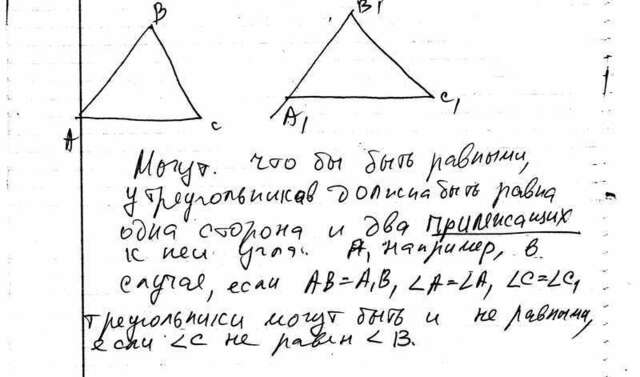 B
B₁
A
C
A₁
C₁
Могут. что бы быть равными,
у треугольников должна быть равна
одна сторона и два прилежащих
к ней угла. А, например, в
случае, если AB=A₁B, ∠A=∠A, ∠C=∠C₁
треугольники могут быть и не равными,
если ∠C не равен ∠B.